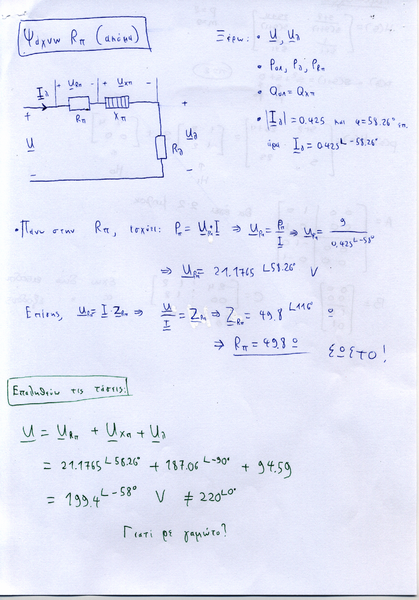 Ψάχνω Rπ (ακόμα)
Ξέρω: • U, Uδ
• Pολ, Pδ, Pπ
• Qολ = Qχπ
• |Iδ| = 0.425 και φ = 58.26° επ.
άρα Iδ = 0.425∟-58.26°
Iδ URπ UXπ
+ Rπ Xπ +
U Rδ Uδ
- -
• Πάνω στην Rπ, ισχύει: Pπ = URπ·I ⇒ URπ = Pπ/I ⇒ URπ = 9/0.425∟-58°
⇒ URπ = 21.1765∟58.26° V
Επίσης, URπ = I·ZRπ ⇒ U/I = ZRπ ⇒ ZRπ = 49.8∟116°
⇒ Rπ = 49.8 Ω ΣΩΣΤΟ!
Επαληθεύω τις τάσεις:
U = URπ + UXπ + Uδ
= 21.1765∟58.26° + 187.06∟-90° + 94.59
= 199.4∟-58° V ≠ 220∟0°
Γιατί ρε γαμώτο?